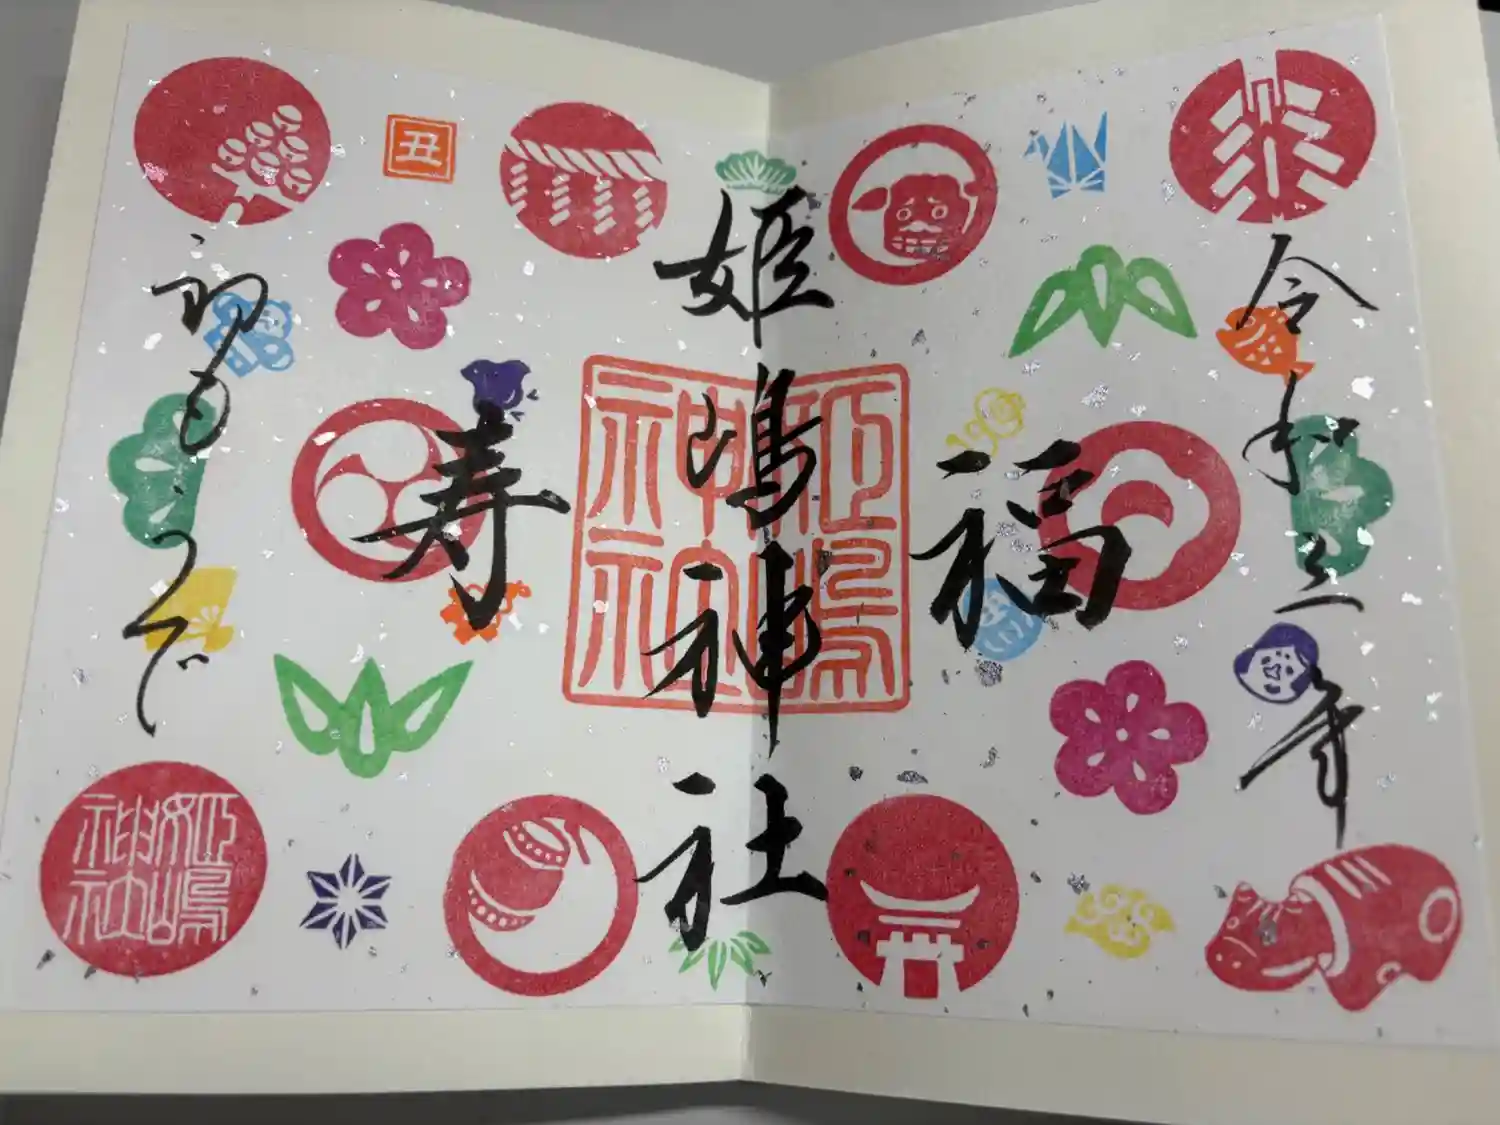 令和三年
福
姫嶋神社
寿
初もうで
丑
姫嶋神社
姫嶋神社